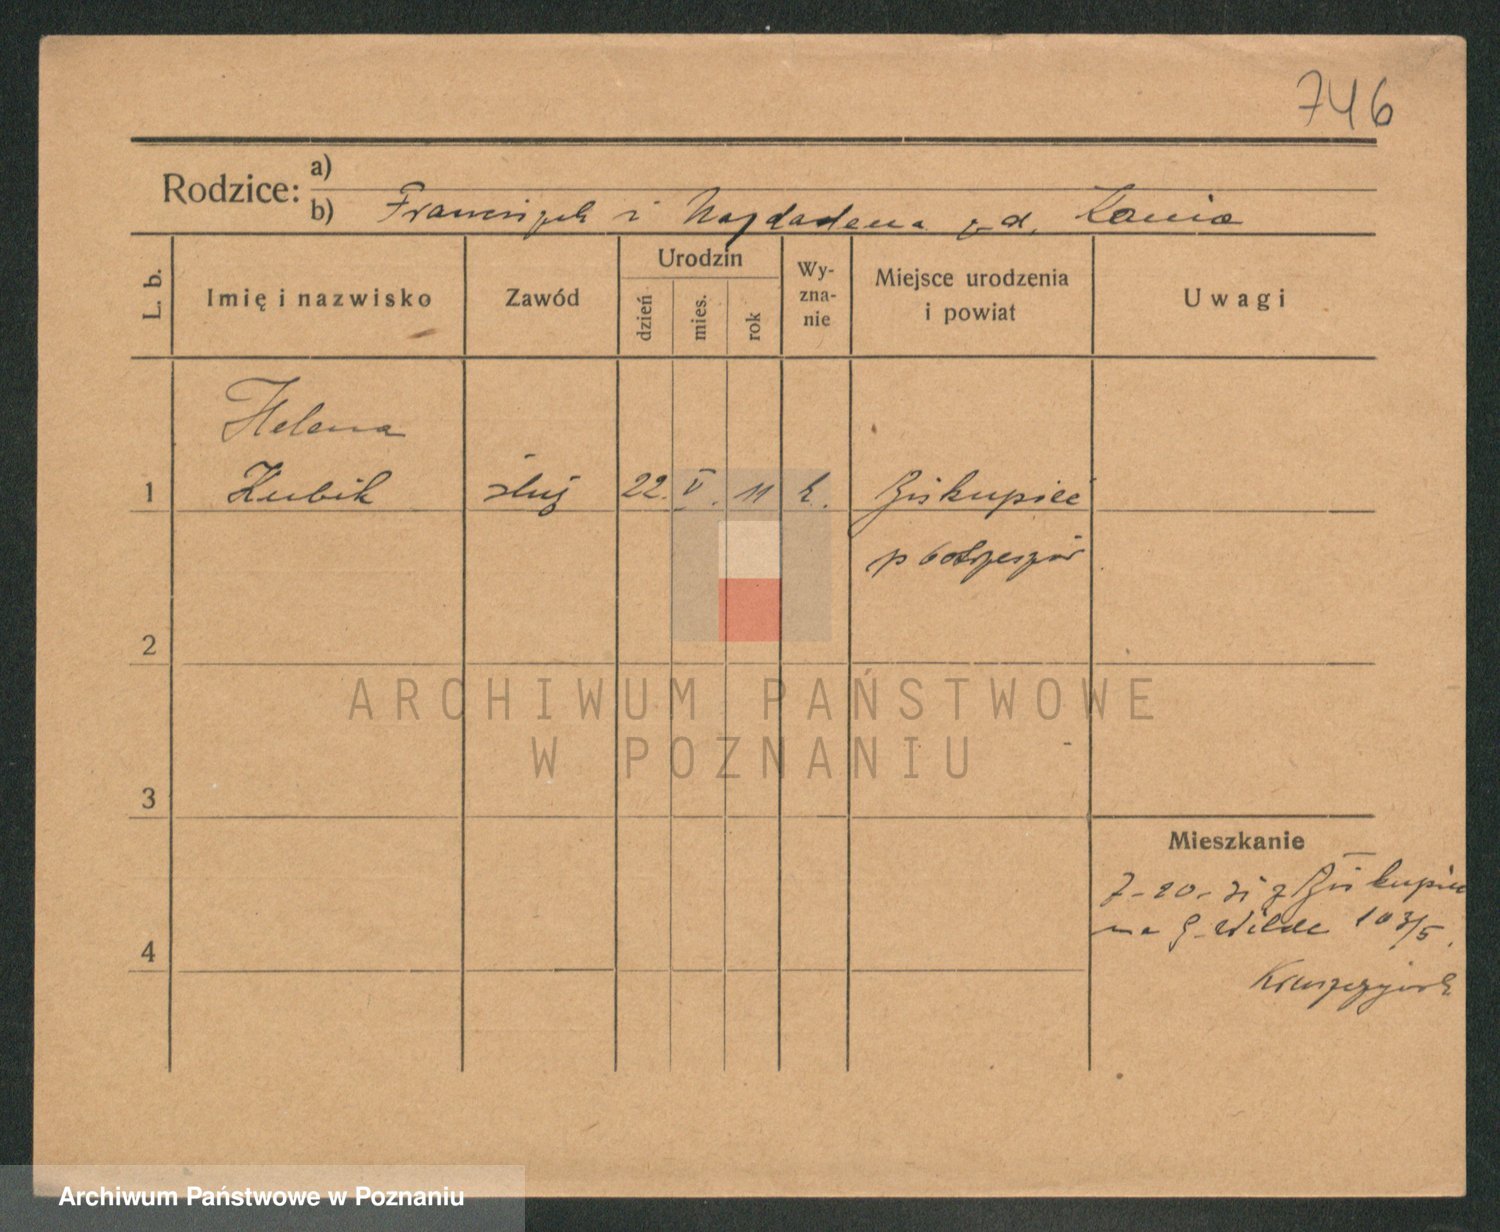 746
Rodzice: a)
b) Franciszek i Magdalena z d. Kania
L. b.
Imię i nazwisko
Zawód
Urodzin
dzień
mies.
rok
Wy-
zna-
nie
Miejsce urodzenia
i powiat
Uwagi
Helena
1 Kubik służ 22. V. 11 k. Biskupice
p
2
3
4
Mieszkanie
7-20- z Biskupic
na G. Wilde 103/5.
ARCHIWUM PAŃSTWOWE
W POZNANIU
Archiwum Państwowe w Poznaniu